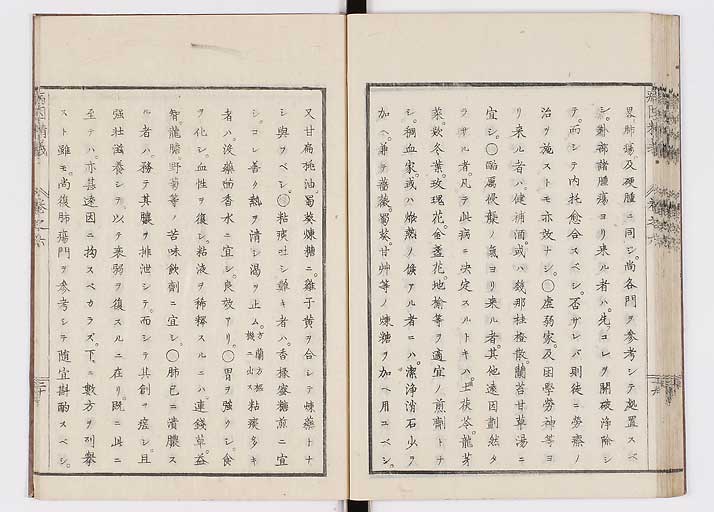 畧肺瘍及硬腫ニ同シ。尚各門ヲ参考シテ處置スベ
シ。外部諸腫瘍ヨリ来ル者ハ。先コレヲ開破浄除シ
テ。而シテ内托愈合スベシ。否ザレバ則徒ニ労療ノ
治ヲ施ストモ亦效ナシ。○虚弱家及困學労神等ヨ
リ来ル者ハ。健補酒。或ハ幾那桂橙散。蘭苔甘草湯ニ
宜シ。○酷厲侵襲ノ氣ヨリ来ル者。其他遠因劃然タ
ラザル者。凡テ此病ニ決定スルトキハ。土茯苓。龍芽
菜。欵冬葉。玫瑰花。金盞花。地榆等ヲ適宜ノ煎劑トナ
シ。稠血家。或ハ焮熱ノ候アル者ニハ。潔浄消石少ヲ
加ヘ。兼テ薔薇。蜀葵。甘艸等ノ煉糖ヲ加ヘ用ユベシ。
又甘扁桃油。蜀葵煉糖ニ。雞子黄ヲ合シテ煉藥トナ
シ與ヲベシ。○粘痰吐シ難キ者ハ。杏橼蜜糖煎ニ宜
シ。コレ善ク熱ヲ清シ渇ヲ止ム。方蘭方枢機ニ出ス粘痰多キ
者ハ。没藥茴香水ニ宜シ。良效アリ。○胃ヲ強クシ。食
ヲ化シ。血性ヲ復シ。粘液ヲ稀釋スルニハ。連錢草。益
智。龍膽。野菊等ノ苦味飲劑ニ宜シ。○肺已ニ潰膿ス
ル者ハ。務テ其膿ヲ排泄シテ。而シテ其創ヲ瘥シ。且
強壮滋養シテ。以テ衰弱ヲ復スルニ在リ。既ニ此ニ
至テハ。亦甚遠因ニ拘スベカラズ。下ニ數方ヲ列擧
スト雖モ。尚復肺瘍門ヲ参考シテ随宜斟酌スベシ。